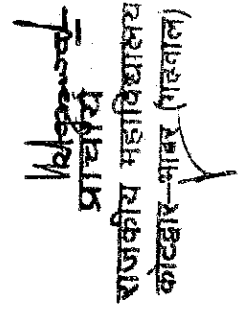 प्राचार्य
राजकीय महाविद्यालय
कोटद्वार-भाबर (गढ़वाल)